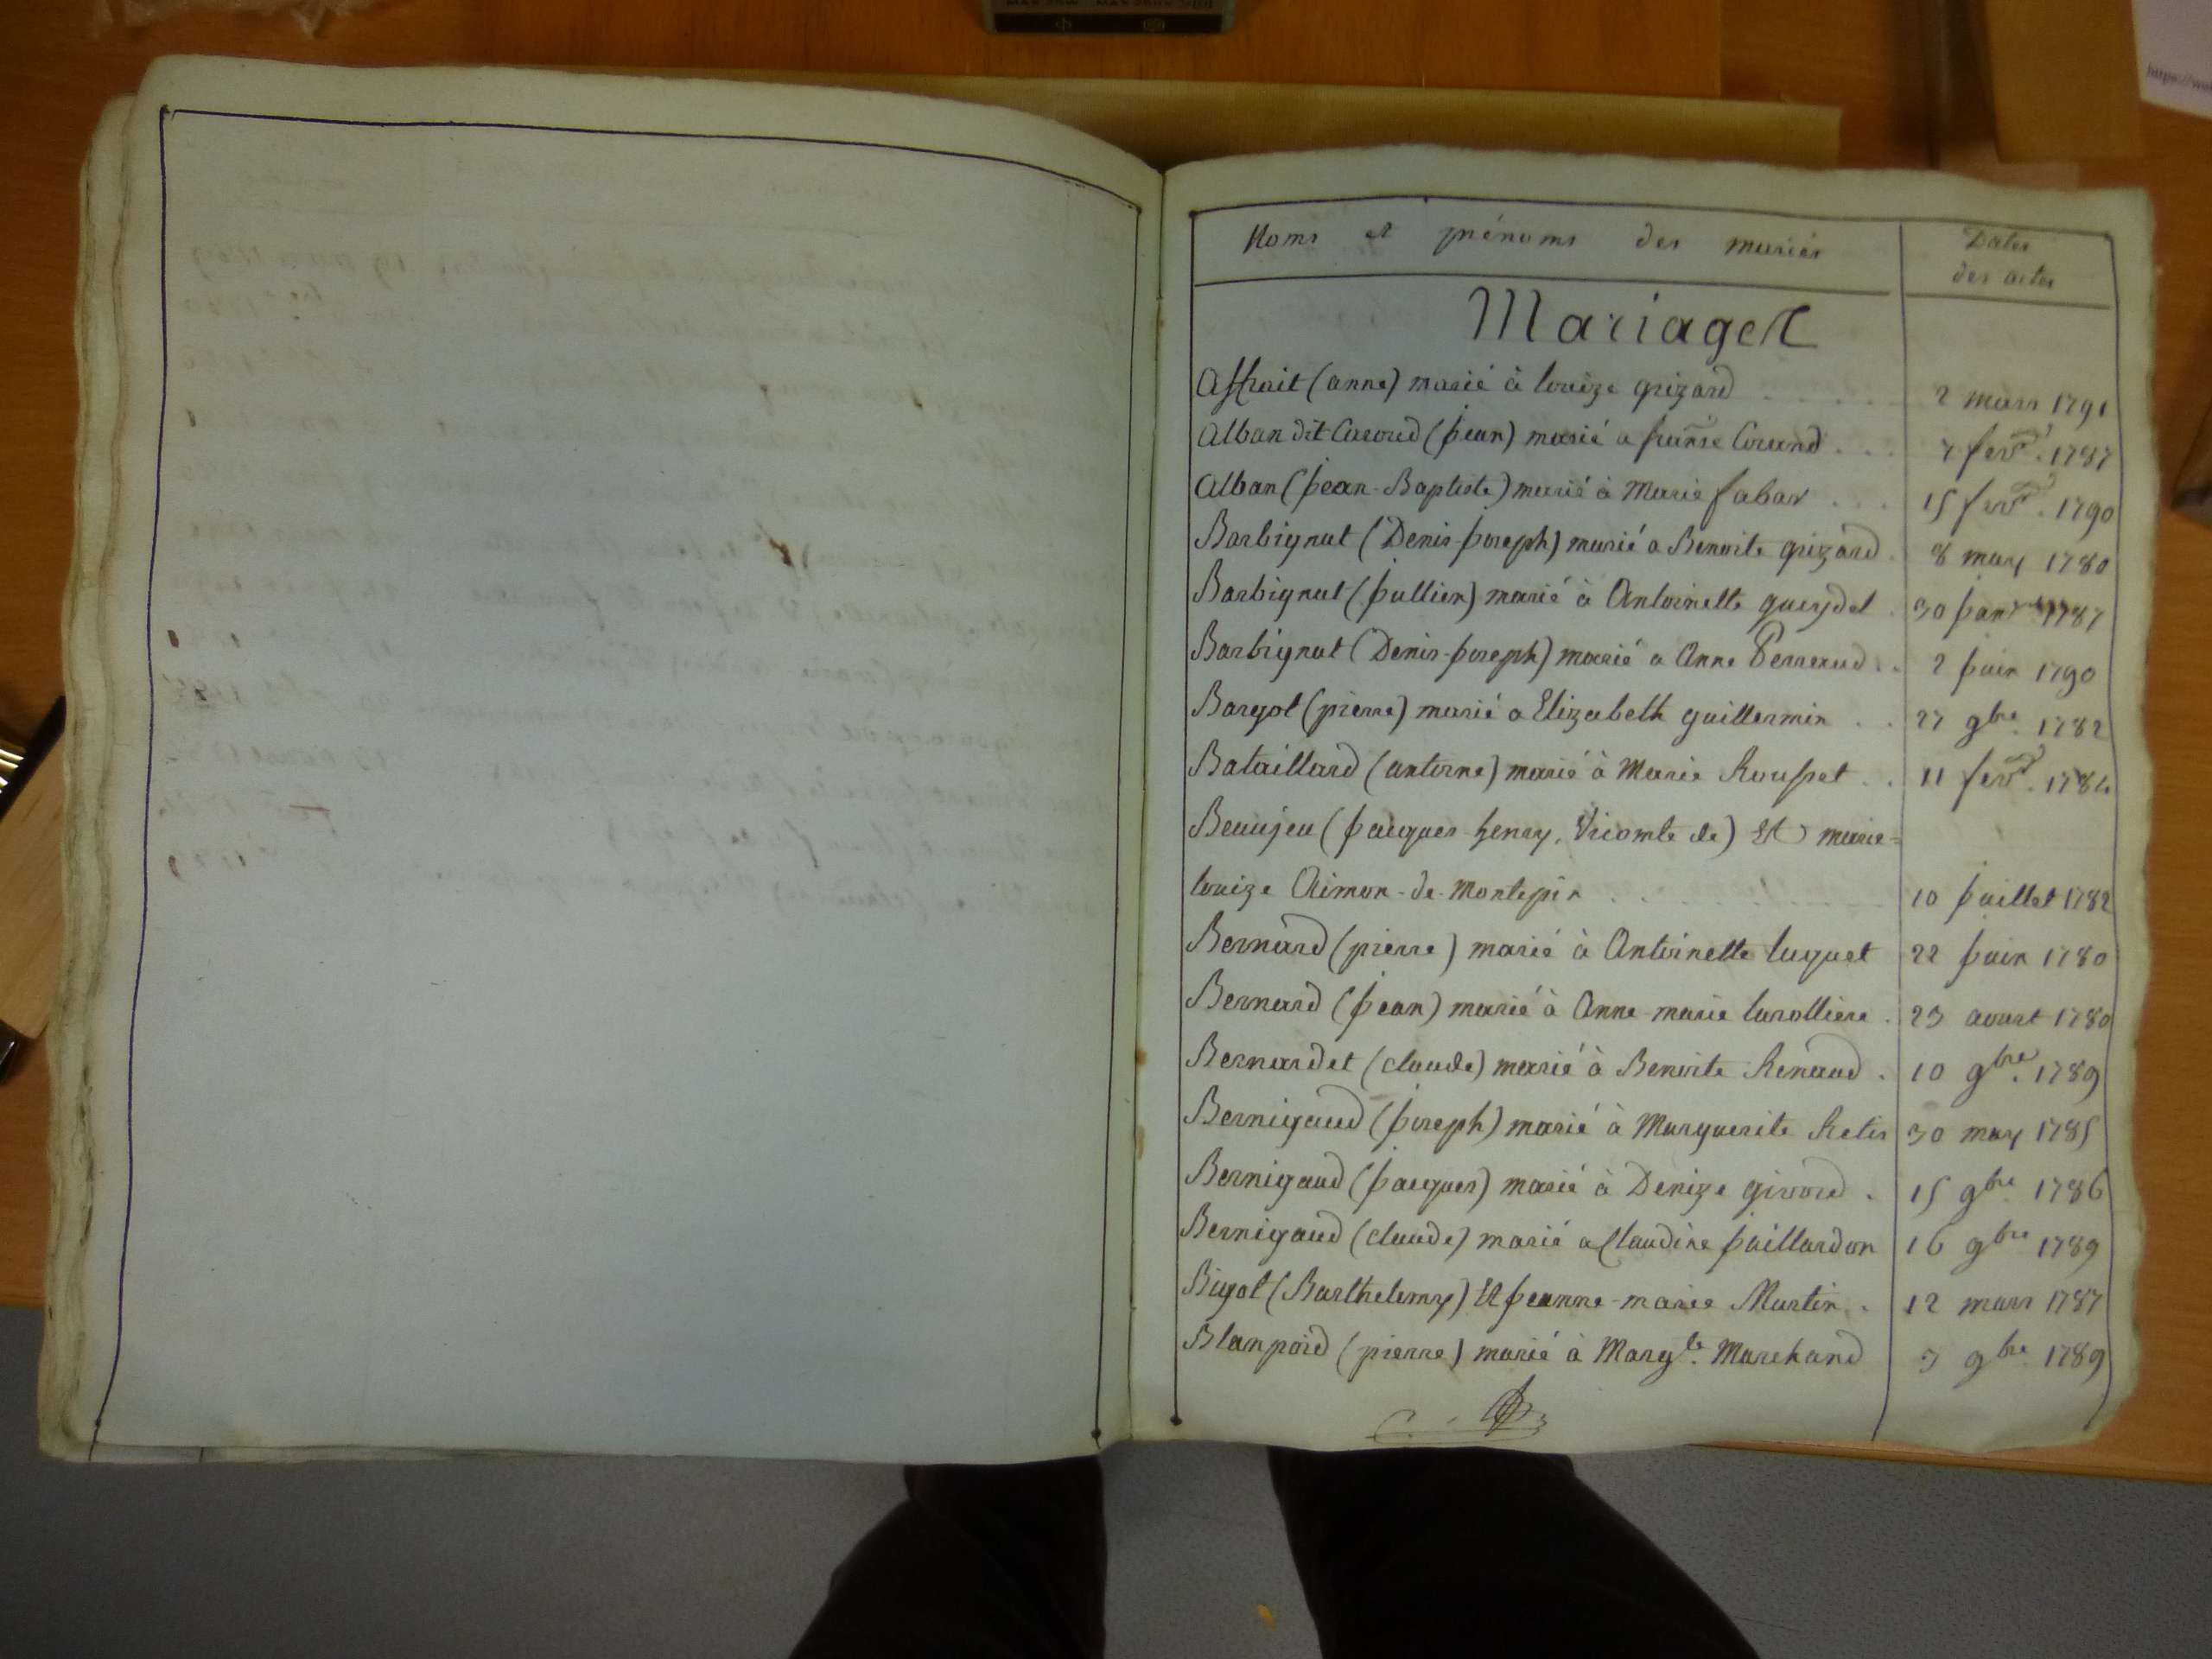 Noms et prénoms des mariés
Dates
des actes
Mariages
(anne) marié à louize grizard . . . . . 2 mars 1791
Alban dit (jean) marié a . . . 7 fevr. 1787
Alban (jean-Baptiste) marié à Marie fabar . . . 15 fevr. 1790
Barbignat (Denis-joseph) marié a Benoite grizard . 8 may 1780
Barbignat (jullien) marié à Antoinette gueydet . 30 janr 1787
Barbignat (Denis-joseph) marié a Anne Perraud . . 2 juin 1790
Bargot (pierre) marié a Elizabeth guillermin . . 27 9bre 1782
Bataillard (antoine) marié à Marie Rousset . . 11 fevr. 1784
Beaujeu (jacques-henry, Vicomte de) Et marie=
louize Aimon-de-Montepin . . . . . 10 juillet 1782
Bernard (pierre) marié à Antoinette luquet 22 juin 1780
Bernard (jean) marié à Anne-marie larolliere . 23 aoust 1780
Bernardet (claude) marié à Benoite Renaud . 10 9bre. 1789
Bernigaud (joseph) marié à Marguerite Retis 30 may 1785
Bernigaud (jacques) marié à Denize givord . 15 9bre 1786
Bernigaud (claude) marié a Claudine juillardon 16 9bre 1789
Bigot (Barthelemy) Et jeanne-marie Martin . 12 mars 1787
Blanpoid (pierre) marié à Margte. Marchand 3 9bre 1789